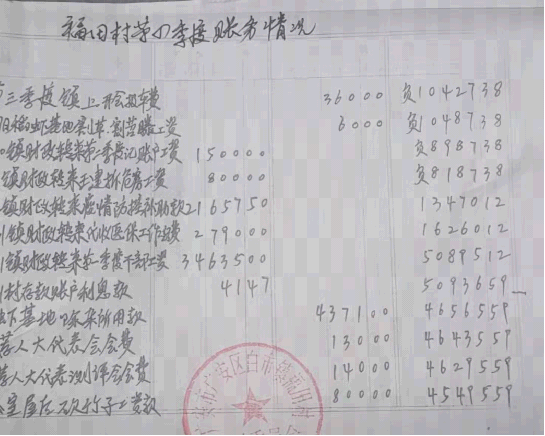 福田村第四季度账务情况
三季度镇上开会租车费 36000 负1042738
稻虾基地割草、割苕藤工资 6000 负1048738
镇财政转来第二季度记账户工资 150000 负898738
镇财政转来王建拆危房工资 80000 负818738
镇财政转来疫情防控补助款 2165750 1347012
镇财政转来代收医保工作经费 279000 1626012
镇财政转来第一季度干部工资 3463500 5089512
村存款账户利息款 4147 5093659
虾基地除杂所用款 437100 4656559
人大代表会会费 13000 4643559
人大代表测评会会费 14000 4629559
屋后砍竹子工资款 80000 4549559
广安区白市镇福田村